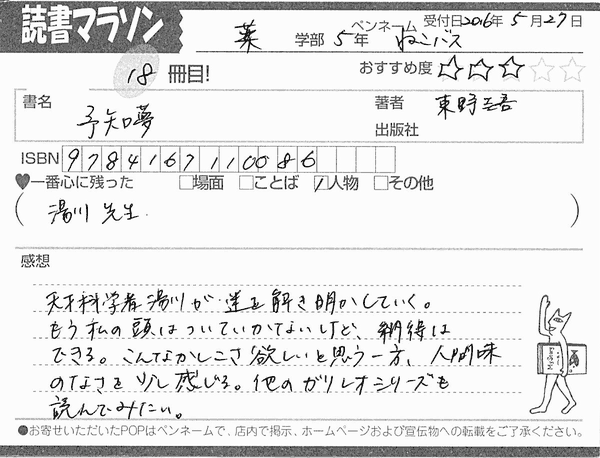 読書マラソン
薬 学部 5年 ペンネーム ねこバス 受付日2016年 5月27日
18 冊目!
おすすめ度 ☆☆☆☆☆
書名 予知夢
著者 東野圭吾
出版社
ISBN 9784167110086
♥一番心に残った □場面 □ことば ☑人物 □その他
(湯川 先生)
感想
天才科学者湯川が謎を解き明かしていく。
もう私の頭はついていかないけど、納得は
できる。こんなかしこさ欲しいと思う一方、人間味
のなさを少し感じる。他のガリレオシリーズも
読んでみたい。
●お寄せいただいたPOPはペンネームで、店内で掲示、ホームページおよび宣伝物への転載をご了承ください。